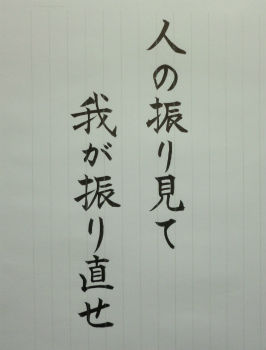 人の振り見て
我が振り直せ